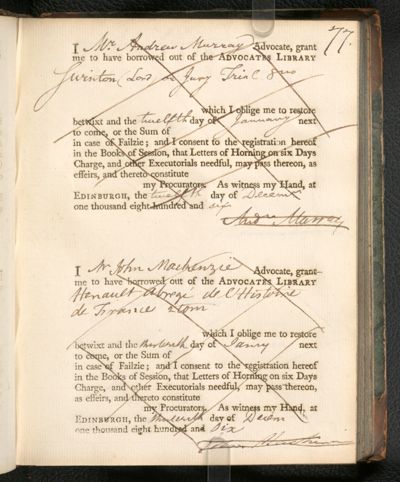 77.
I Mr. Andrew Murray Advocate, grant
me to have borrowed out of the ADVOCATES LIBRARY
Swinton Lord on Jury Trial 8vo
which I oblige me to restore
betwixt and the twelfth day of January next
to come, or the Sum of
in case of Failzie; and I consent to the registration hereof
in the Books of Session, that Letters of Horning on six Days
Charge, and other Executorials needful, may pass thereon, as
effeirs, and thereto constitute
my Procurators. As witness my Hand, at
EDINBURGH, the twelfth day of Decem
one thousand eight hundred and six
Andw. Murray
I Mr John Mackenzie Advocate, grant
me to have borrowed out of the ADVOCATES LIBRARY
Henault Abregé de l'Histoire
de France 2 tom
which I oblige me to restore
betwixt and the day of Janry next
to come, or the Sum of
in case of Failzie; and I consent to the registration hereof
in the Books of Session, that Letters of Horning on six Days
Charge, and other Executorials needful, may pass thereon,
as effeirs, and thereto constitute
my Procurators. As witness my Hand, at
EDINBURGH, the day of Decem
one thousand eight hundred and Six